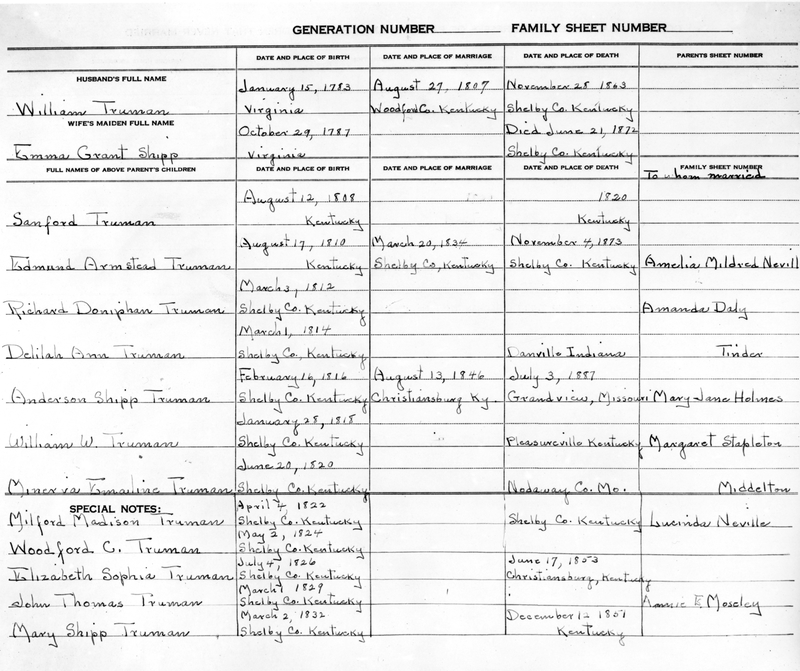 GENERATION NUMBER FAMILY SHEET NUMBER
DATE AND PLACE OF BIRTH DATE AND PLACE OF MARRIAGE DATE AND PLACE OF DEATH PARENTS SHEET NUMBER
HUSBAND'S FULL NAME January 15, 1783 August 27, 1807 November 28 1863
William Truman Virginia Woodford Co. Kentucky Shelby Co. Kentucky
WIFE'S MAIDEN FULL NAME October 29, 1787 Died June 21, 1872
Emma Grant Shipp Virginia Shelby Co. Kentucky
FULL NAMES OF ABOVE PARENT'S CHILDREN DATE AND PLACE OF BIRTH DATE AND PLACE OF MARRIAGE DATE AND PLACE OF DEATH FAMILY SHEET NUMBER
To whom married
August 12, 1808 1820
Sanford Truman Kentucky Kentucky
August 17, 1810 March 20, 1834 November 4, 1873
Edmund Armstead Truman Kentucky Shelby Co, Kentucky Shelby Co. Kentucky Amelia Mildred Nevill
March 3, 1812
Richard Doniphan Truman Shelby Co. Kentucky Amanda Daly
March 1, 1814
Delilah Ann Truman Shelby Co, Kentucky Danville Indiana Tinder
February 16, 1816 August 13, 1846 July 3, 1887
Anderson Shipp Truman Shelby Co. Kentucky Christiansburg Ky. Grandview, Missouri Mary Jane Holmes
January 28, 1818
William W. Truman Shelby Co. Kentucky Pleasureville Kentucky Margaret Stapleton
June 20, 1820
Minerva Emailine Truman Shelby Co. Kentucky Nodaway Co. Mo. Middelton
SPECIAL NOTES: April 4 1822
Milford Madison Truman Shelby Co. Kentucky Shelby Co. Kentucky Lucinda Neville
May 2, 1824
Woodford C. Truman Shelby Co. Kentucky
July 4, 1826 June 17, 1853
Elizabeth Sophia Truman Shelby Co. Kentucky Christiansburg, Kentucky
March 1 1829
John Thomas Truman Shelby Co. Kentucky Annie E Moseley
March 2, 1832 December 12 1851
Mary Shipp Truman Shelby Co. Kentucky Kentucky